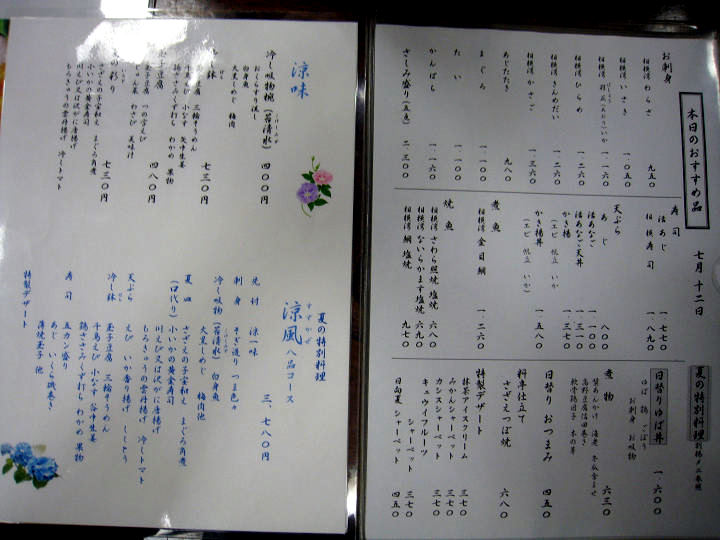 本日のおすすめ品
七月 十二日
夏の特別料理
お刺身
相模湾 わらさ 九五〇
相模湾 いさき 一.〇五〇
相模湾 いか 一.一六〇
相模湾 ひらめ
相模湾 きんめだい 一.二六〇
相模湾 かさご 一.三六〇
あじたたき 九八〇
まぐろ 一.一〇〇
たい 一.一〇〇
かんぱち 一.一六〇
さしみ盛り(五点) 二.三〇〇
寿司
活あじ 一.五七〇
相模寿司 一.八九〇
天ぷら
あじ 八〇〇
活あなご 一.一〇〇
活あなご天丼 一.三一〇
かき揚 一.三七〇
(エビ 帆立 いか)
かき揚丼 一.五八〇
(エビ 帆立 いか)
煮魚
相模湾 金目鯛 一.二六〇
焼魚
相模湾 さわら照焼 塩焼 六八〇
相模湾 ないらかます塩焼 六八〇
相模湾 鯛 塩焼 九七〇
日替りゆば丼 一.六〇〇
ゆば 鶏 ごぼう
お刺身 お吸物
煮物 六三〇
高野豆腐信田巻き
日替り おつまみ 四五〇
料亭仕立て
さざえつぼ焼 六八〇
特製デザート
抹茶アイスクリーム 三七〇
みかんシャーベット 三七〇
カシスシャーベット 三七〇
キュウイフルーツ
シャーベット 三七〇
日向夏 シャーベット 四五〇
涼味
冷し吸物椀(岩清水) 四〇〇円
おくらすり流し
白身魚
大黒しめじ 梅肉
冷し鉢 七三〇円
玉子豆腐 三輪そうめん
鶏ささみくず打ち わかめ 果物
玉子豆腐 つの字えび 四八〇円
じゅん菜 わさび 美味汁
夏の彩り 七三〇円
さざえの子宝和え まぐろ角煮
小いかの黄金寿司
川えび又は沢がに唐揚げ
もろきゅうの雲丹揚げ 冷しトマト
夏の特別料理
涼風 八品コース
三、七八〇円
先付 涼一味
刺身 そぎ造り つま色々
冷し吸物(岩清水) 白身魚
大黒しめじ 梅肉他
夏皿 さざえの子宝和え まぐろ角煮
(口代り) 小いかの黄金寿司
川えび又は沢がに唐揚げ
もろきゅうの雲丹揚げ 冷しトマト
天ぷら えび いか香り揚げ ししとう
冷し鉢 玉子豆腐 三輪そうめん
千鳥えび 小なす 谷中生姜
鶏ささみくず打ち わかめ 果物
寿司 五カン盛り
あじ いくら磯巻き
薄焼玉子 他
特製デザート